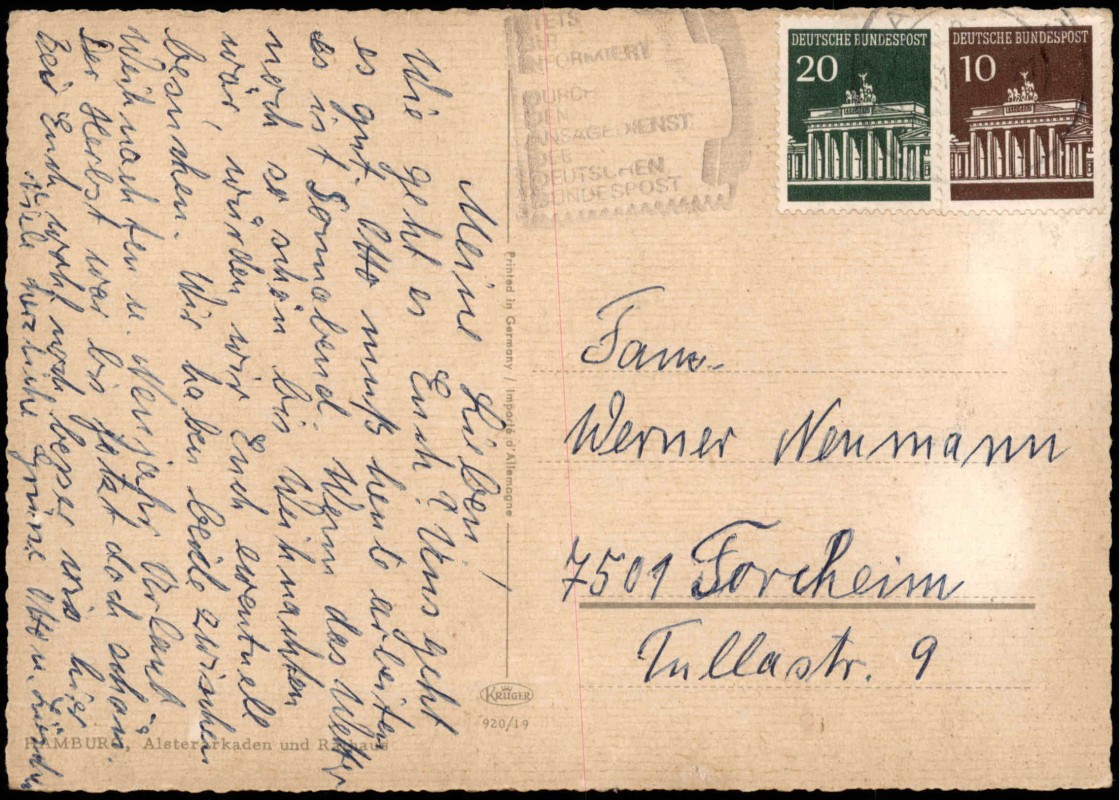 Meine Lieben!
Wie geht es Euch? Uns geht
es gut. Otto muß heute arbeiten
es ist Sonnabend. Wenn das Wetter
noch so schön bis Weihnachten
wär, würden wir Euch eventuell
besuchen. Wir haben beide zwischen
Weihnachten u. Neujahr Urlaub
Der Herbst war bis jetzt doch schön.
Bei Euch wohl noch besser wie hier
Viele herzliche Grüße Otto u.
HAMBURG, Alsterarkaden und Rathaus
Printed in Germany / Importé d'Allemagne
KRÜGER
920/19
STETS
GUT
INFORMIERT
DURCH
DEN
ANSAGEDIENST
DER
DEUTSCHEN
BUNDESPOST
DEUTSCHE BUNDESPOST
20
DEUTSCHE BUNDESPOST
10
Fam.
Werner Neumann
7501 Forcheim
Tullastr. 9